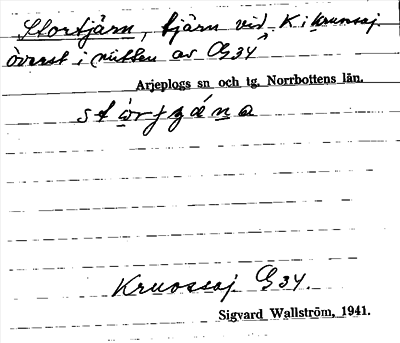 Stortjärn, tjärn vid K i Kruosaj
överst i mitten av G34
Arjeplogs sn och tg, Norrbottens län.
Kruosaj G34.
Sigvard Wallström, 1941.